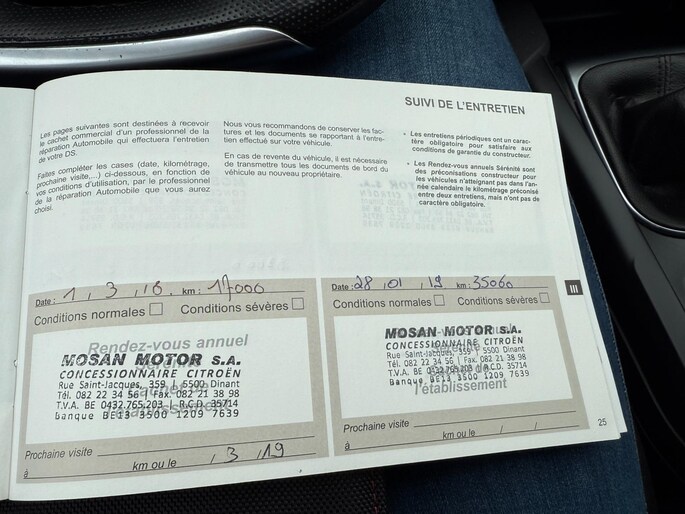 SUIVI DE L'ENTRETIEN
Les pages suivantes sont destinées à recevoir
le cachet commercial d'un professionnel de la
réparation Automobile qui effectuera l'entretien
de votre DS.
Faites compléter les cases (date, kilométrage,
prochaine visite,...) ci-dessous, en fonction de
vos conditions d'utilisation, par le professionnel
de la réparation Automobile que vous aurez
choisi.
Nous vous recommandons de conserver les fac-
tures et les documents se rapportant à l'entre-
tien effectué sur votre véhicule.
En cas de revente du véhicule, il est nécessaire
de transmettre tous les documents de bord du
véhicule au nouveau propriétaire.
• Les entretiens périodiques ont un carac-
tère obligatoire pour satisfaire aux
conditions de garantie du constructeur.
• Les Rendez-vous annuels Sérénité sont
des préconisations constructeur pour
les véhicules n'atteignant pas dans l'an-
née calendaire le kilométrage préconisé
entre deux entretiens, mais n'ont pas de
caractère obligatoire.
Date : 1, 3, km : 17000
Conditions normales Conditions sévères
Rendez-vous annuel
MOSAN MOTOR S.A.
CONCESSIONNAIRE CITROËN
Rue Saint-Jacques, 359 | 5500 Dinant
Tél. 082 22 34 56 | Fax. 082 21 38 98
T.V.A. BE 0432.765.203 | R.C.D. 35714
Banque BE13 3500 1209 7639
l'établissement
Prochaine visite
à km ou le , 3 , 19
Date : 28, 01, 19 km : 35060
Conditions normales Conditions sévères
MOSAN MOTOR S.A.
CONCESSIONNAIRE CITROËN
Rue Saint-Jacques, 359 | 5500 Dinant
Tél. 082 22 34 56 | Fax. 082 21 38 98
T.V.A. BE 0432.765.203 | R.C.D. 35714
Banque BE13 3500 1209 7639
l'établissement
Prochaine visite
à km ou le / /
III
25